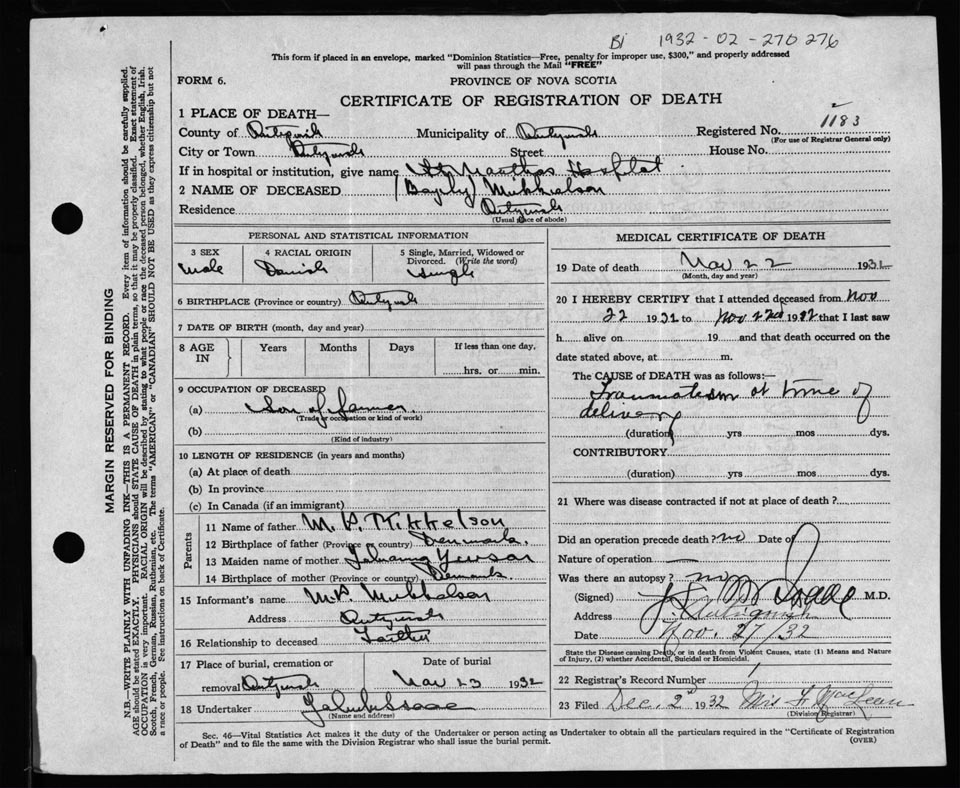 1932-02-270276
This form if placed in an envelope, marked "Dominion Statistics—Free, penalty for improper use, $300," and properly addressed
will pass through the Mail "FREE"
FORM 6.
PROVINCE OF NOVA SCOTIA
CERTIFICATE OF REGISTRATION OF DEATH
1 PLACE OF DEATH—
1183
County of Antigonish Municipality of Antigonish Registered No.
(For use of Registrar General only)
City or Town Antigonish Street House No.
If in hospital or institution, give name St. Marthas Hospital
2 NAME OF DECEASED (Baby) Mikkelson
Residence Antigonish
(Usual place of abode)
PERSONAL AND STATISTICAL INFORMATION
3 SEX
Male
4 RACIAL ORIGIN
Danish
5 Single, Married, Widowed or
Divorced. (Write the word)
single
6 BIRTHPLACE (Province or country) Antigonish
7 DATE OF BIRTH (month, day and year)
8 AGE IN
Years Months Days If less than one day,
hrs. or min.
9 OCCUPATION OF DECEASED
(a) Son of farmer
(Trade or occupation or kind of work)
(b)
(Kind of industry)
10 LENGTH OF RESIDENCE (in years and months)
(a) At place of death
(b) In province
(c) In Canada (if an immigrant)
Parents
11 Name of father M. P. Mikkelson
12 Birthplace of father (Province or country) Denmark
13 Maiden name of mother
14 Birthplace of mother (Province or country) Denmark
15 Informant's name M.P. Mikkelson
Address Antigonish
16 Relationship to deceased Father
17 Place of burial, cremation or
removal Antigonish
Date of burial
Nov 23 1932
18 Undertaker
(Name and address)
MEDICAL CERTIFICATE OF DEATH
19 Date of death Nov 22 193
(Month, day and year)
20 I HEREBY CERTIFY that I attended deceased from Nov
22 1932 to Nov 22nd 1932 that I last saw
h alive on 19 and that death occurred on the
date stated above, at m.
The CAUSE of DEATH was as follows:—
Traumatism at time of
delivery
(duration) yrs mos dys.
CONTRIBUTORY
(duration) yrs mos dys.
21 Where was disease contracted if not at place of death?
Did an operation precede death? no Date of
Nature of operation —
Was there an autopsy? no
(Signed) M.D.
Address Antigonish
Date Nov. 27/32
State the Disease causing Death, or in death from Violent Causes, state (1) Means and Nature
of Injury, (2) whether Accidental, Suicidal or Homicidal.
22 Registrar's Record Number 1
23 Filed Dec. 2nd 1932 Mrs F MacLean
(Division Registrar)
Sec. 46—Vital Statistics Act makes it the duty of the Undertaker or person acting as Undertaker to obtain all the particulars required in the "Certificate of Registration
of Death" and to file the same with the Division Registrar who shall issue the burial permit.
(OVER)
MARGIN RESERVED FOR BINDING
N.B.—WRITE PLAINLY WITH UNFADING INK—THIS IS A PERMANENT RECORD. Every item of information should be carefully supplied.
AGE should be stated EXACTLY. PHYSICIANS should STATE CAUSE OF DEATH in plain terms, so that it may be properly classified. Exact statement of
OCCUPATION is very important. RACIAL ORIGIN will be described by stating to what people or race the deceased person belonged, whether English, Irish,
Scotch, French, German, Russian, Ruthenian, etc. The terms "AMERICAN" or "CANADIAN" SHOULD NOT BE USED as they express citizenship but not
a race or people. See instructions on back of Certificate.